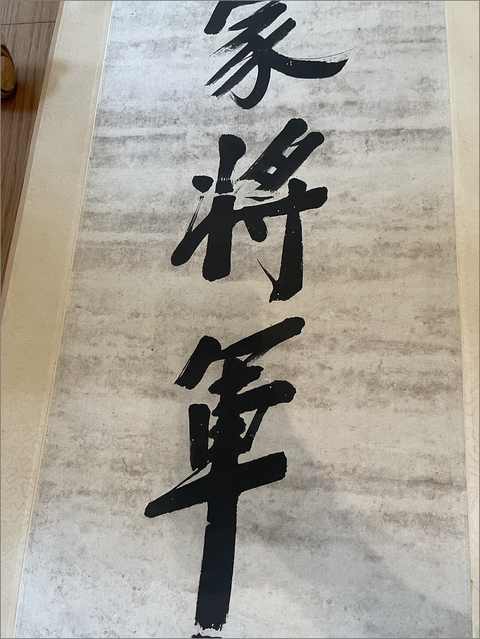 家將軍